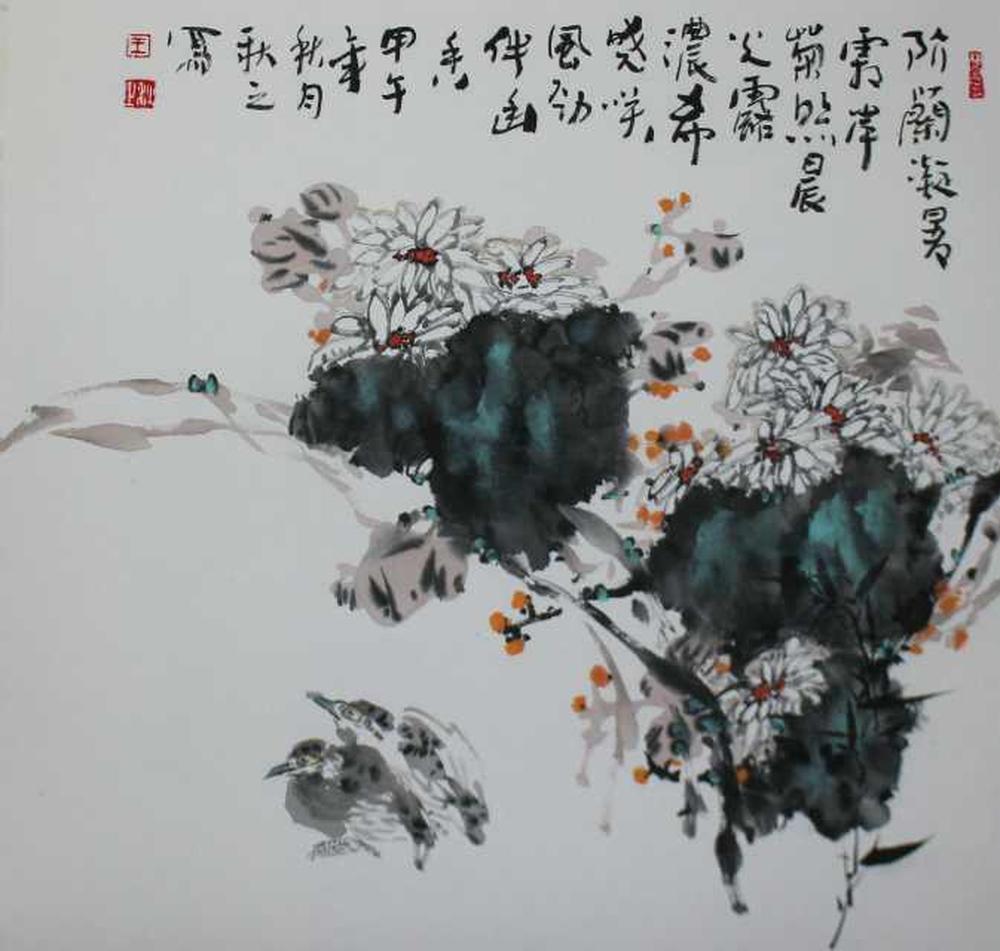 阶蘭凝暑
霜岸
菊照晨
光露
濃希
晓咲
風劲
伴幽
香
甲午
年
秋月
秋之
寫
王